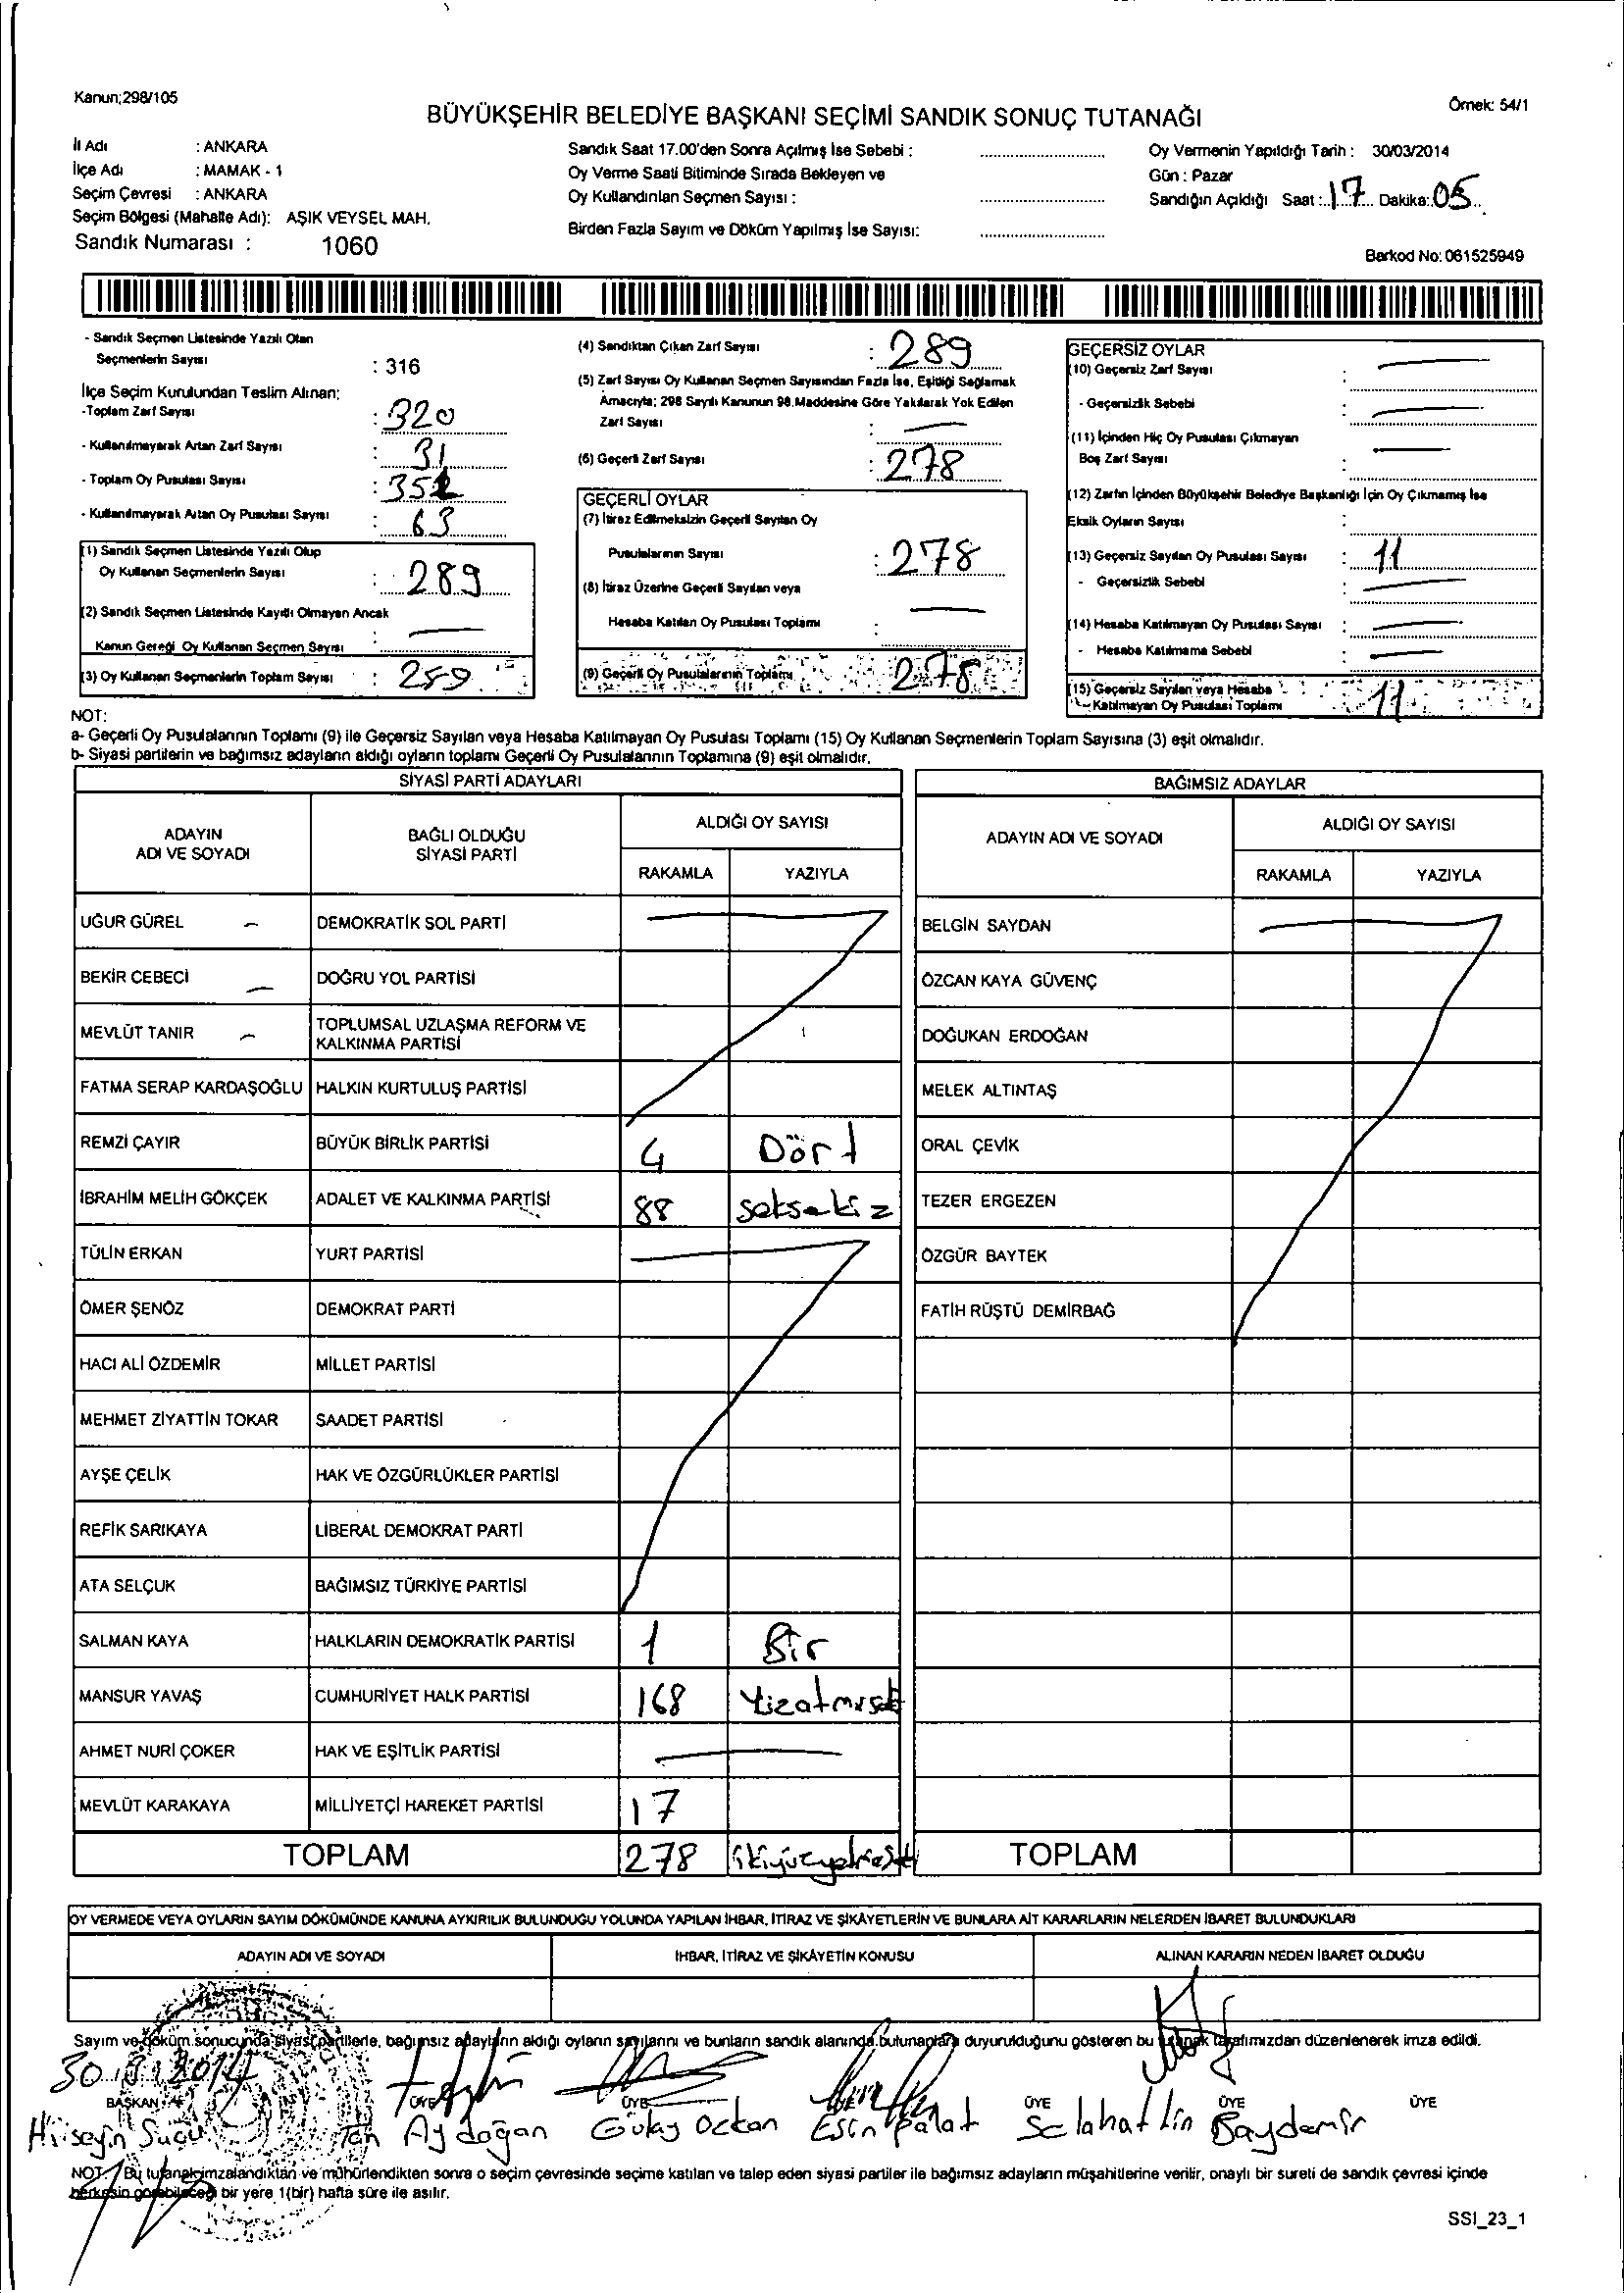 Kanun;298/105
Örnek: 54/1
BÜYÜKŞEHİR BELEDİYE BAŞKANI SEÇİMİ SANDIK SONUÇ TUTANAĞI
İl Adı : ANKARA
İlçe Adı : MAMAK - 1
Seçim Çevresi : ANKARA
Seçim Bölgesi (Mahalle Adı): AŞIK VEYSEL MAH.
Sandık Numarası : 1060
Sandık Saat 17.00'den Sonra Açılmış İse Sebebi :
Oy Verme Saati Bitiminde Sırada Bekleyen ve
Oy Kullandırılan Seçmen Sayısı :
Birden Fazla Sayım ve Döküm Yapılmış İse Sayısı:
Oy Vermenin Yapıldığı Tarih : 30/03/2014
Gün : Pazar
Sandığın Açıldığı Saat : 17 Dakika: 05
Barkod No: 061525949
- Sandık Seçmen Listesinde Yazılı Olan
Seçmenlerin Sayısı : 316
İlçe Seçim Kurulundan Teslim Alınan;
-Toplam Zarf Sayısı : 320
- Kullanılmayarak Artan Zarf Sayısı : 31
- Toplam Oy Pusulası Sayısı : 352
- Kullanılmayarak Artan Oy Pusulası Sayısı : 63
(1) Sandık Seçmen Listesinde Yazılı Olup
Oy Kullanan Seçmenlerin Sayısı : 289
(2) Sandık Seçmen Listesinde Kayıtlı Olmayan Ancak
Kanun Gereği Oy Kullanan Seçmen Sayısı : —
(3) Oy Kullanan Seçmenlerin Toplam Sayısı : 289
(4) Sandıktan Çıkan Zarf Sayısı : 289
(5) Zarf Sayısı Oy Kullanan Seçmen Sayısından Fazla İse, Eşitliği Sağlamak
Amacıyla; 298 Sayılı Kanunun 98.Maddesine Göre Yakılarak Yok Edilen
Zarf Sayısı : —
(6) Geçerli Zarf Sayısı : 278
GEÇERLİ OYLAR
(7) İtiraz Edilmeksizin Geçerli Sayılan Oy
Pusulalarının Sayısı : 278
(8) İtiraz Üzerine Geçerli Sayılan veya
Hesaba Katılan Oy Pusulası Toplamı : —
(9) Geçerli Oy Pusulalarının Toplamı : 278
GEÇERSİZ OYLAR
(10) Geçersiz Zarf Sayısı : —
- Geçersizlik Sebebi : —
(11) İçinden Hiç Oy Pusulası Çıkmayan
Boş Zarf Sayısı : —
(12) Zarfın İçinden Büyükşehir Belediye Başkanlığı İçin Oy Çıkmamış İse
Eksik Oyların Sayısı :
(13) Geçersiz Sayılan Oy Pusulası Sayısı : 11
- Geçersizlik Sebebi : —
(14) Hesaba Katılmayan Oy Pusulası Sayısı : —
- Hesaba Katılmama Sebebi : —
(15) Geçersiz Sayılan veya Hesaba
Katılmayan Oy Pusulası Toplamı : 11
NOT:
a- Geçerli Oy Pusulalarının Toplamı (9) ile Geçersiz Sayılan veya Hesaba Katılmayan Oy Pusulası Toplamı (15) Oy Kullanan Seçmenlerin Toplam Sayısına (3) eşit olmalıdır.
b- Siyasi partilerin ve bağımsız adayların aldığı oyların toplamı Geçerli Oy Pusulalarının Toplamına (9) eşit olmalıdır.
SİYASİ PARTİ ADAYLARI
ADAYIN ADI VE SOYADI
BAĞLI OLDUĞU SİYASİ PARTİ
ALDIĞI OY SAYISI
RAKAMLA YAZIYLA
UĞUR GÜREL – DEMOKRATİK SOL PARTİ
BEKİR CEBECİ – DOĞRU YOL PARTİSİ
MEVLÜT TANIR – TOPLUMSAL UZLAŞMA REFORM VE KALKINMA PARTİSİ
FATMA SERAP KARDAŞOĞLU HALKIN KURTULUŞ PARTİSİ
REMZİ ÇAYIR BÜYÜK BİRLİK PARTİSİ 4 Dört
İBRAHİM MELİH GÖKÇEK ADALET VE KALKINMA PARTİSİ 88 seksekiz
TÜLİN ERKAN YURT PARTİSİ
ÖMER ŞENÖZ DEMOKRAT PARTİ
HACI ALİ ÖZDEMİR MİLLET PARTİSİ
MEHMET ZİYATTİN TOKAR SAADET PARTİSİ
AYŞE ÇELİK HAK VE ÖZGÜRLÜKLER PARTİSİ
REFİK SARIKAYA LİBERAL DEMOKRAT PARTİ
ATA SELÇUK BAĞIMSIZ TÜRKİYE PARTİSİ
SALMAN KAYA HALKLARIN DEMOKRATİK PARTİSİ 1 Bir
MANSUR YAVAŞ CUMHURİYET HALK PARTİSİ 168
AHMET NURİ ÇOKER HAK VE EŞİTLİK PARTİSİ —
MEVLÜT KARAKAYA MİLLİYETÇİ HAREKET PARTİSİ 17
TOPLAM 278
BAĞIMSIZ ADAYLAR
ADAYIN ADI VE SOYADI
ALDIĞI OY SAYISI
RAKAMLA YAZIYLA
BELGİN SAYDAN
ÖZCAN KAYA GÜVENÇ
DOĞUKAN ERDOĞAN
MELEK ALTINTAŞ
ORAL ÇEVİK
TEZER ERGEZEN
ÖZGÜR BAYTEK
FATİH RÜŞTÜ DEMİRBAĞ
TOPLAM
OY VERMEDE VEYA OYLARIN SAYIM DÖKÜMÜNDE KANUNA AYKIRILIK BULUNDUĞU YOLUNDA YAPILAN İHBAR, İTİRAZ VE ŞİKÂYETLERİN VE BUNLARA AİT KARARLARIN NELERDEN İBARET BULUNDUKLARI
ADAYIN ADI VE SOYADI
İHBAR, İTİRAZ VE ŞİKÂYETİN KONUSU
ALINAN KARARIN NEDEN İBARET OLDUĞU
Sayım ve döküm sonucunda siyasi partilerle, bağımsız adayların aldığı oyların sayılarını ve bunların sandık alanında bulunanlara duyurulduğunu gösteren bu tutanak tarafımızdan düzenlenerek imza edildi.
30.3.2014
BAŞKAN ÜYE ÜYE ÜYE ÜYE ÜYE
Hüseyin Suçu Aydoğan Gülay Esin Palat Selahattin Baydemir
NOT: Bu tutanak imzalandıktan ve mühürlendikten sonra o seçim çevresinde seçime katılan ve talep eden siyasi partiler ile bağımsız adayların müşahitlerine verilir, onaylı bir sureti de sandık çevresi içinde
herkesin görebileceği bir yere 1(bir) hafta süre ile asılır.
SSI_23_1